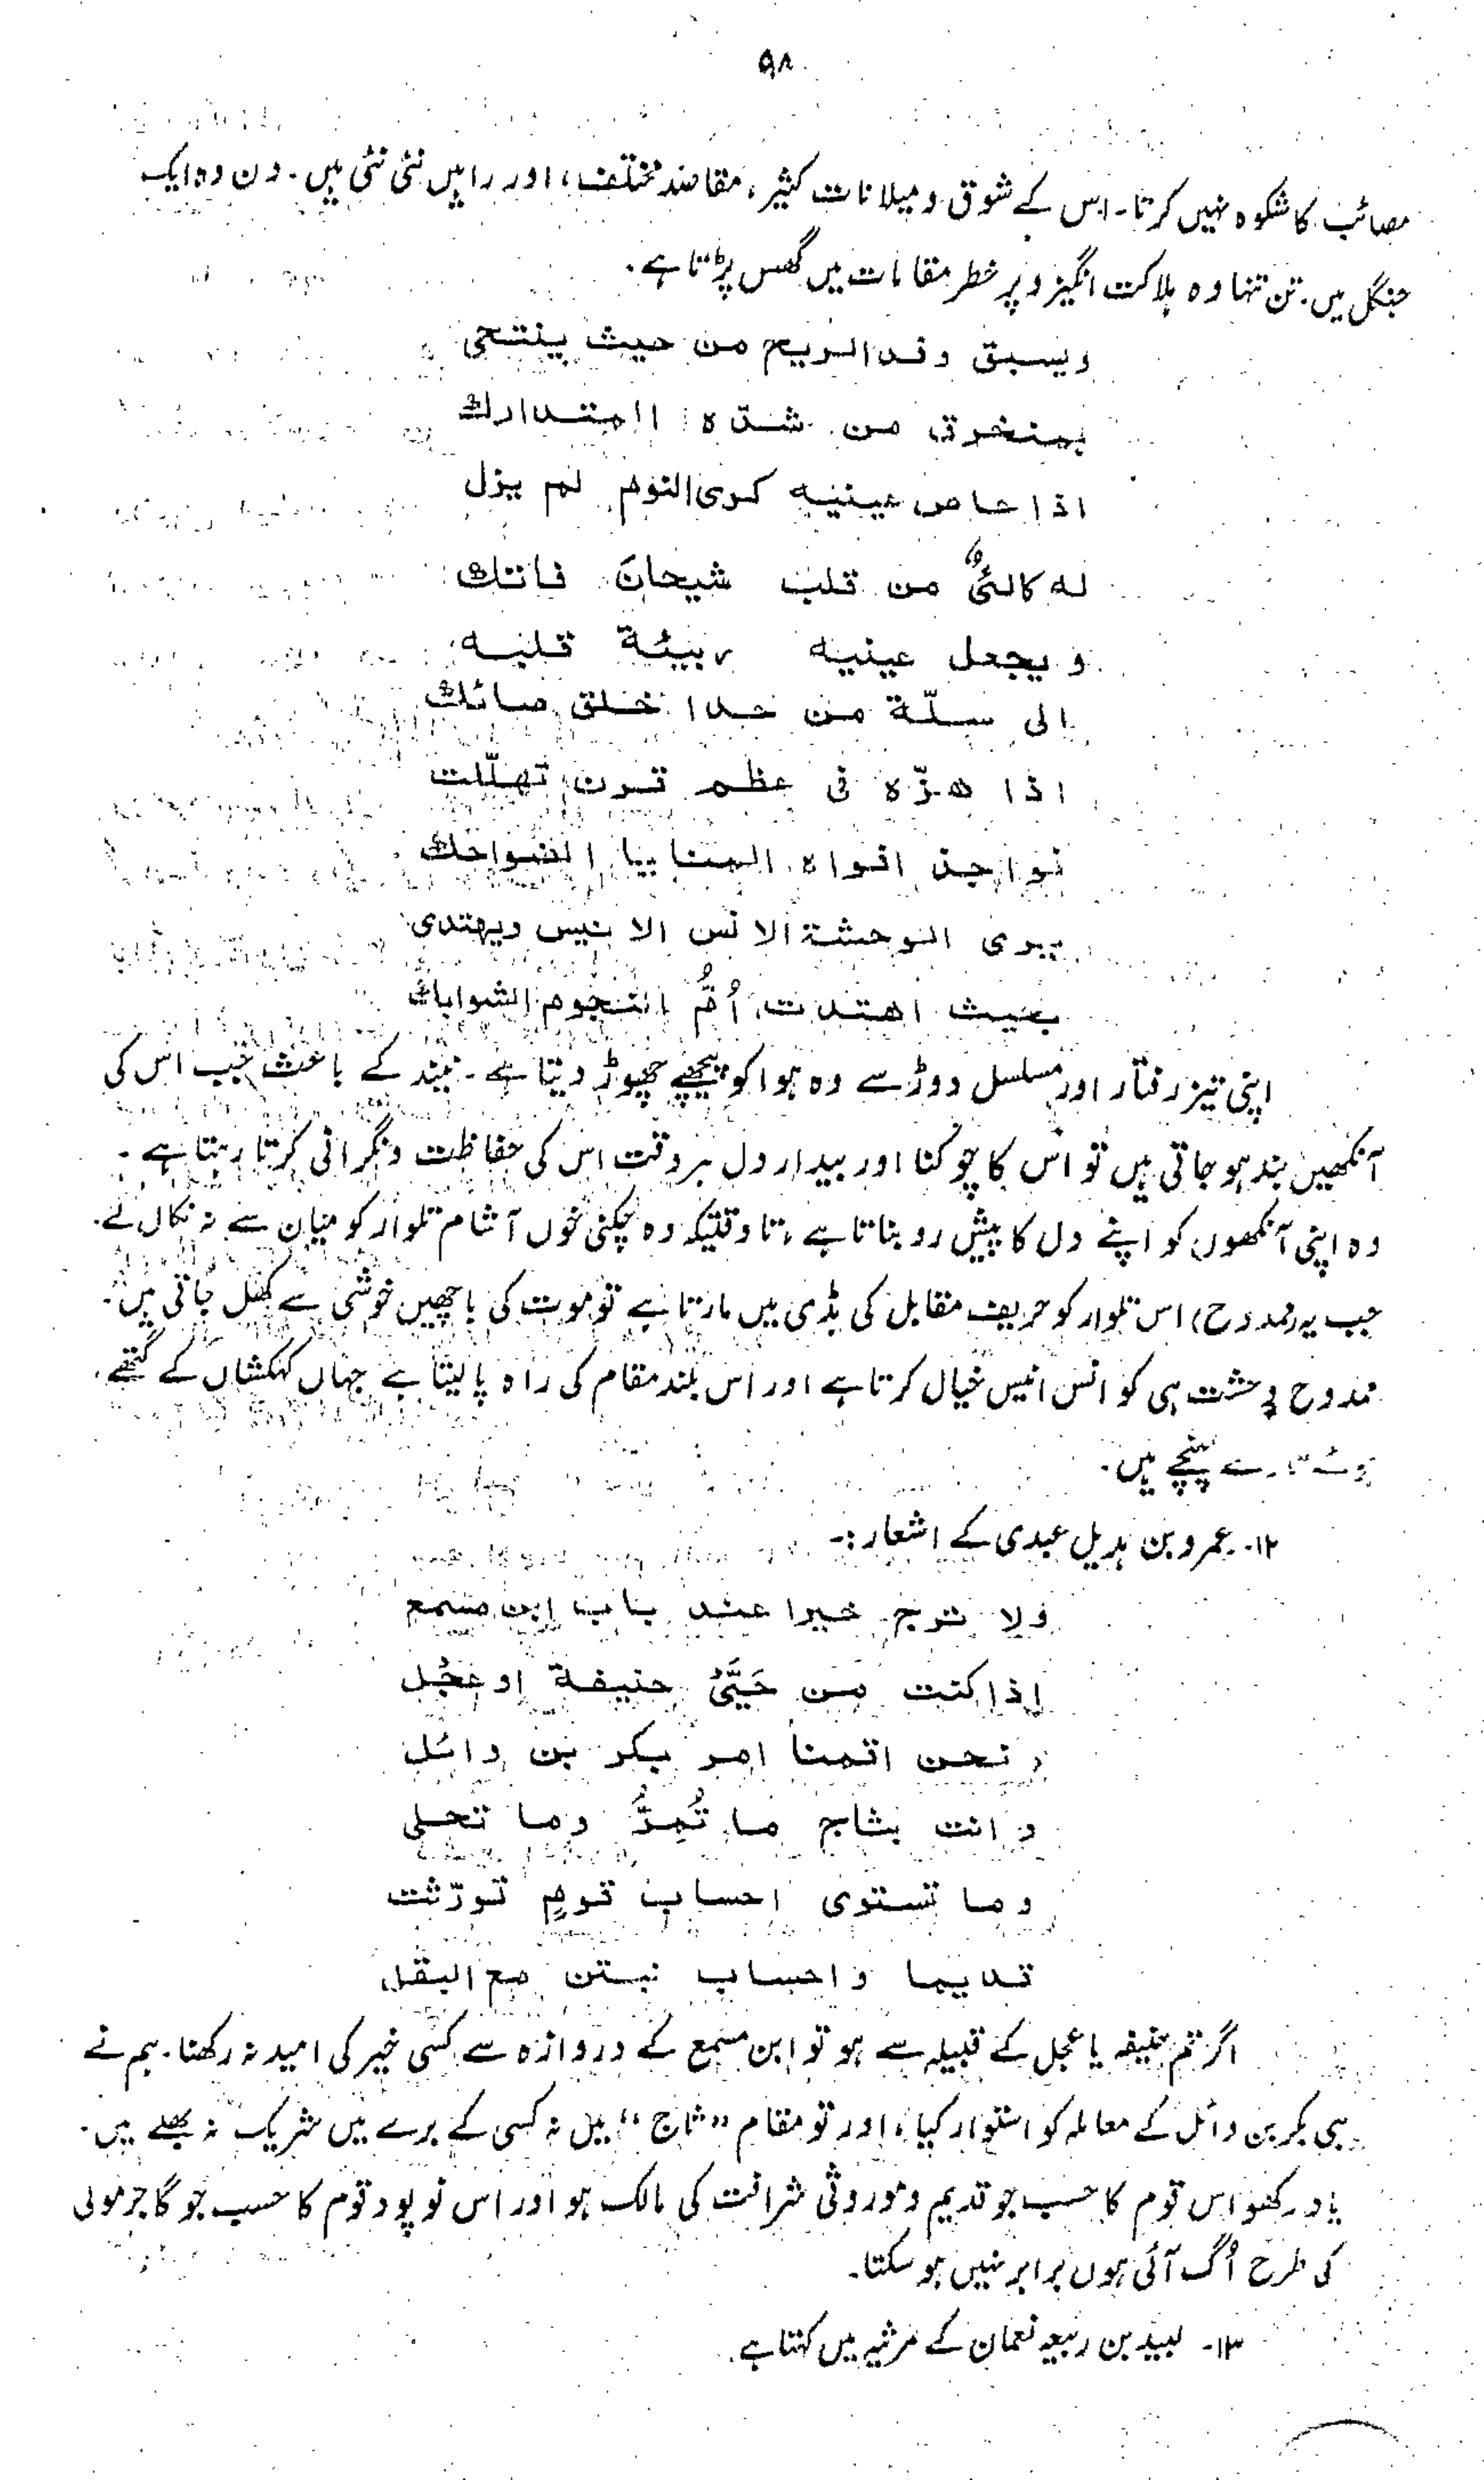 ۹۸
مصائب کا شکوہ نہیں کرتا۔ اس کے شوق و میلانات کثیر، مقاصد مختلف، اور راہیں نئی نئی ہیں۔ دن وہ ایک
جنگل میں۔ تن تنہا وہ ہلاکت انگیز و پر خطر مقامات میں گھس پڑتا ہے۔
ويسبق وفد الريح من حيث ينتحى
بمنخرق من شدّه المتدارك
اذا حاص عينيه كرى النوم لم يزل
له كالئٌ من قلب شيحانَ فاتك
ويجعل عينيه ربيئة قلبه
الى سلّة من حدا خلق صائك
اذا هزّه فى عظم قرن تهلّلت
نواجذ افواه المنايا الضواحك
يرى الوحشة الانس الانيس ويهتدى
بحيث اهتدت اُمُّ النجوم الشوابك
اپنی تیز رفتار اور مسلسل دوڑ سے وہ ہوا کو پیچھے چھوڑ دیتا ہے۔ نیند کے باعث جب اس کی
آنکھیں بند ہو جاتی ہیں تو اس کا چوکنا اور بیدار دل ہر وقت اس کی حفاظت و نگرانی کرتا رہتا ہے۔
وہ اپنی آنکھوں کو اپنے دل کا پیش رو بناتا ہے، تا وقتیکہ وہ چکنی خوں آشام تلوار کو میان سے نہ نکال لے۔
جب یہ (ممدوح) اس تلوار کو حریف مقابل کی ہڈی میں مارتا ہے تو موت کی باچھیں خوشی سے کھل جاتی ہیں۔
ممدوح وحشت ہی کو انس انیس خیال کرتا ہے اور اس بلند مقام کی راہ پا لیتا ہے جہاں کہکشاں کے گتھے
ہوئے ستارے پہنچے ہیں۔
۱۲۔ عمرو بن ہذیل عبدی کے اشعار :۔
ولا ترج خيرا عند باب ابن مسمع
إذا كنت من حَيَّىْ حنيفة او عجل
ونحن اقمنا امر بكر بن وائل
وانت بثاج ما تُمِرُّ وما تحلى
وما تستوى احساب قومٍ تورّثت
قديما واحساب نبتن مع البقل
اگر تم حنیفہ یا عجل کے قبیلہ سے ہو تو ابن مسمع کے دروازہ سے کسی خیر کی امید نہ رکھنا۔ ہم نے
ہی بکر بن وائل کے معاملہ کو استوار کیا، اور تو مقام "ثاج" میں نہ کسی کے برے میں شریک نہ بھلے میں۔
یاد رکھو اس قوم کا حسب جو قدیم و موروثی شرافت کی مالک ہو اور اس نو پود قوم کا حسب جو گاجر مولی
کی طرح اُگ آئی ہوں برابر نہیں ہو سکتا۔
۱۳۔ لبید بن ربیعہ نعمان کے مرثیہ میں کہتا ہے